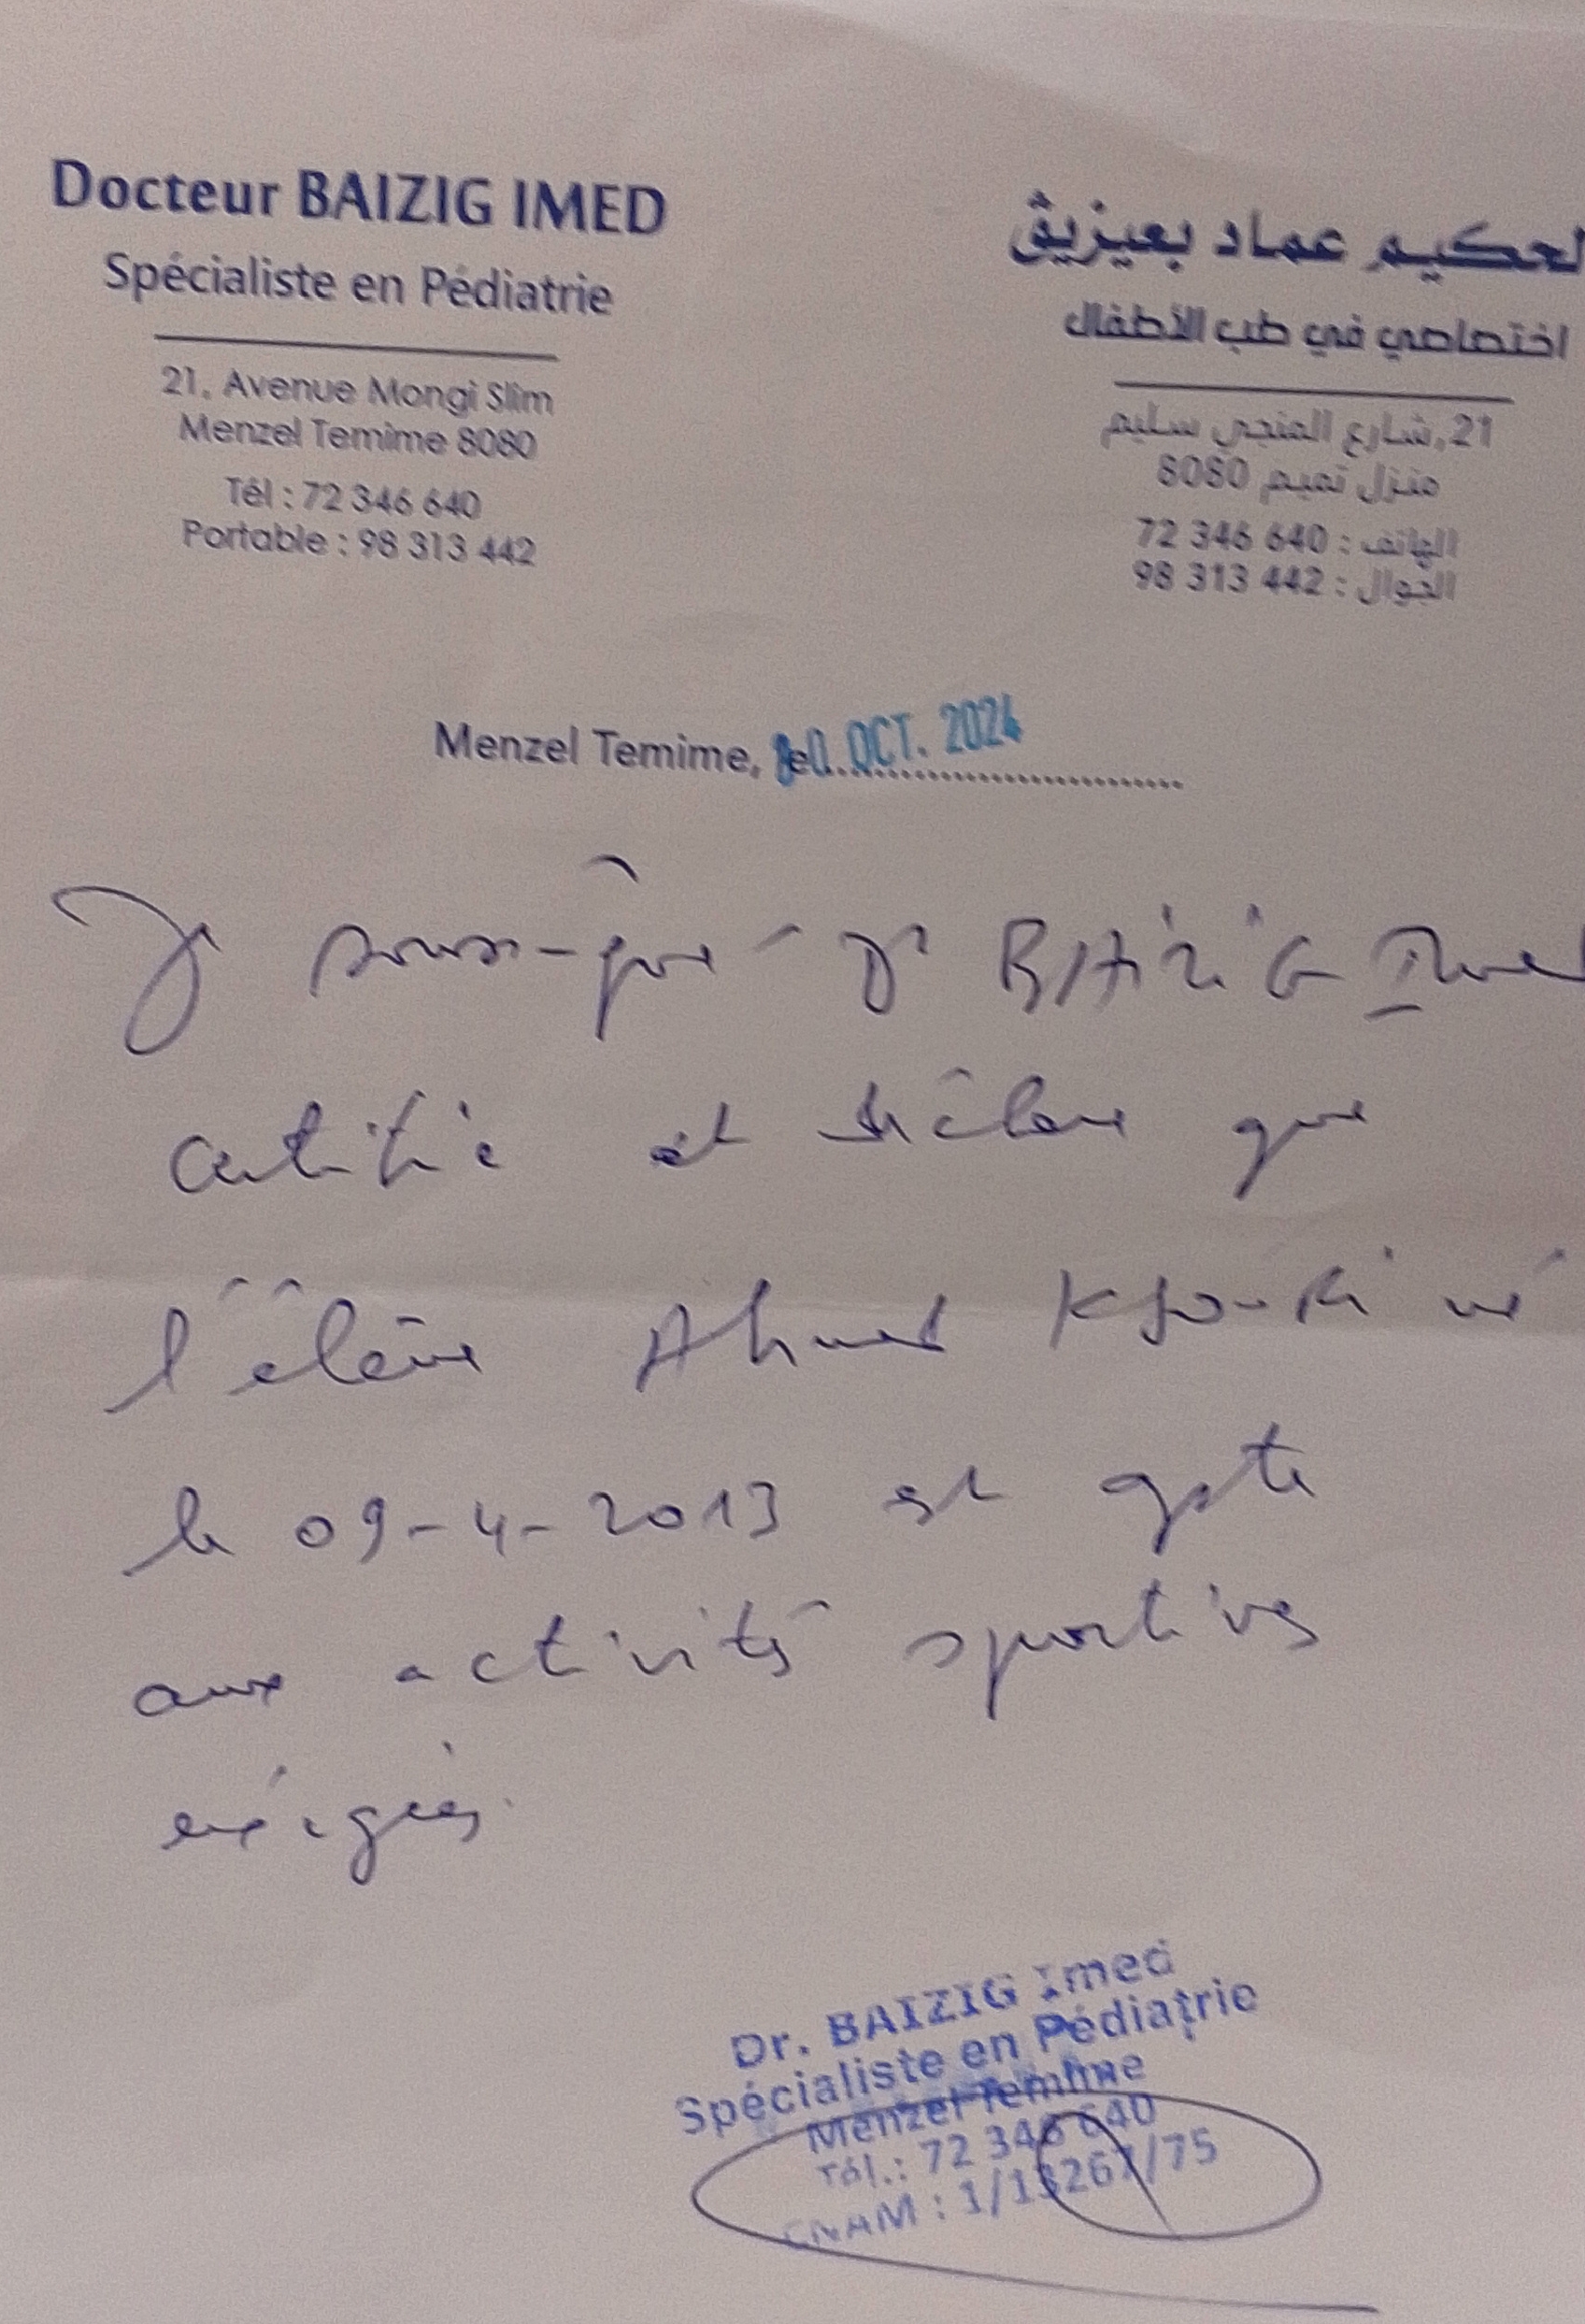 Docteur BAIZIG IMED
Spécialiste en Pédiatrie
21, Avenue Mongi Slim
Menzel Temime 8080
Tél : 72 346 640
Portable : 98 313 442
لحكيم عماد بعيزيڨ
اختصاصي في طب الأطفال
21, شارع المنجي سليم
منزل تميم 8080
الهاتف : 72 346 640
الجوال : 98 313 442
Menzel Temime, le OCT. 2024
Je sous-signé Dr BAIZIG Imed
certifie et déclare que
l'élève Ahmed Ksouri né
le 09-4-2013 est apte
aux activités sportives
exigées.
Dr. BAIZIG Imed
Spécialiste en Pédiatrie
Menzel Temime
Tél.: 72 346 640
CNAM : 1/13267/75